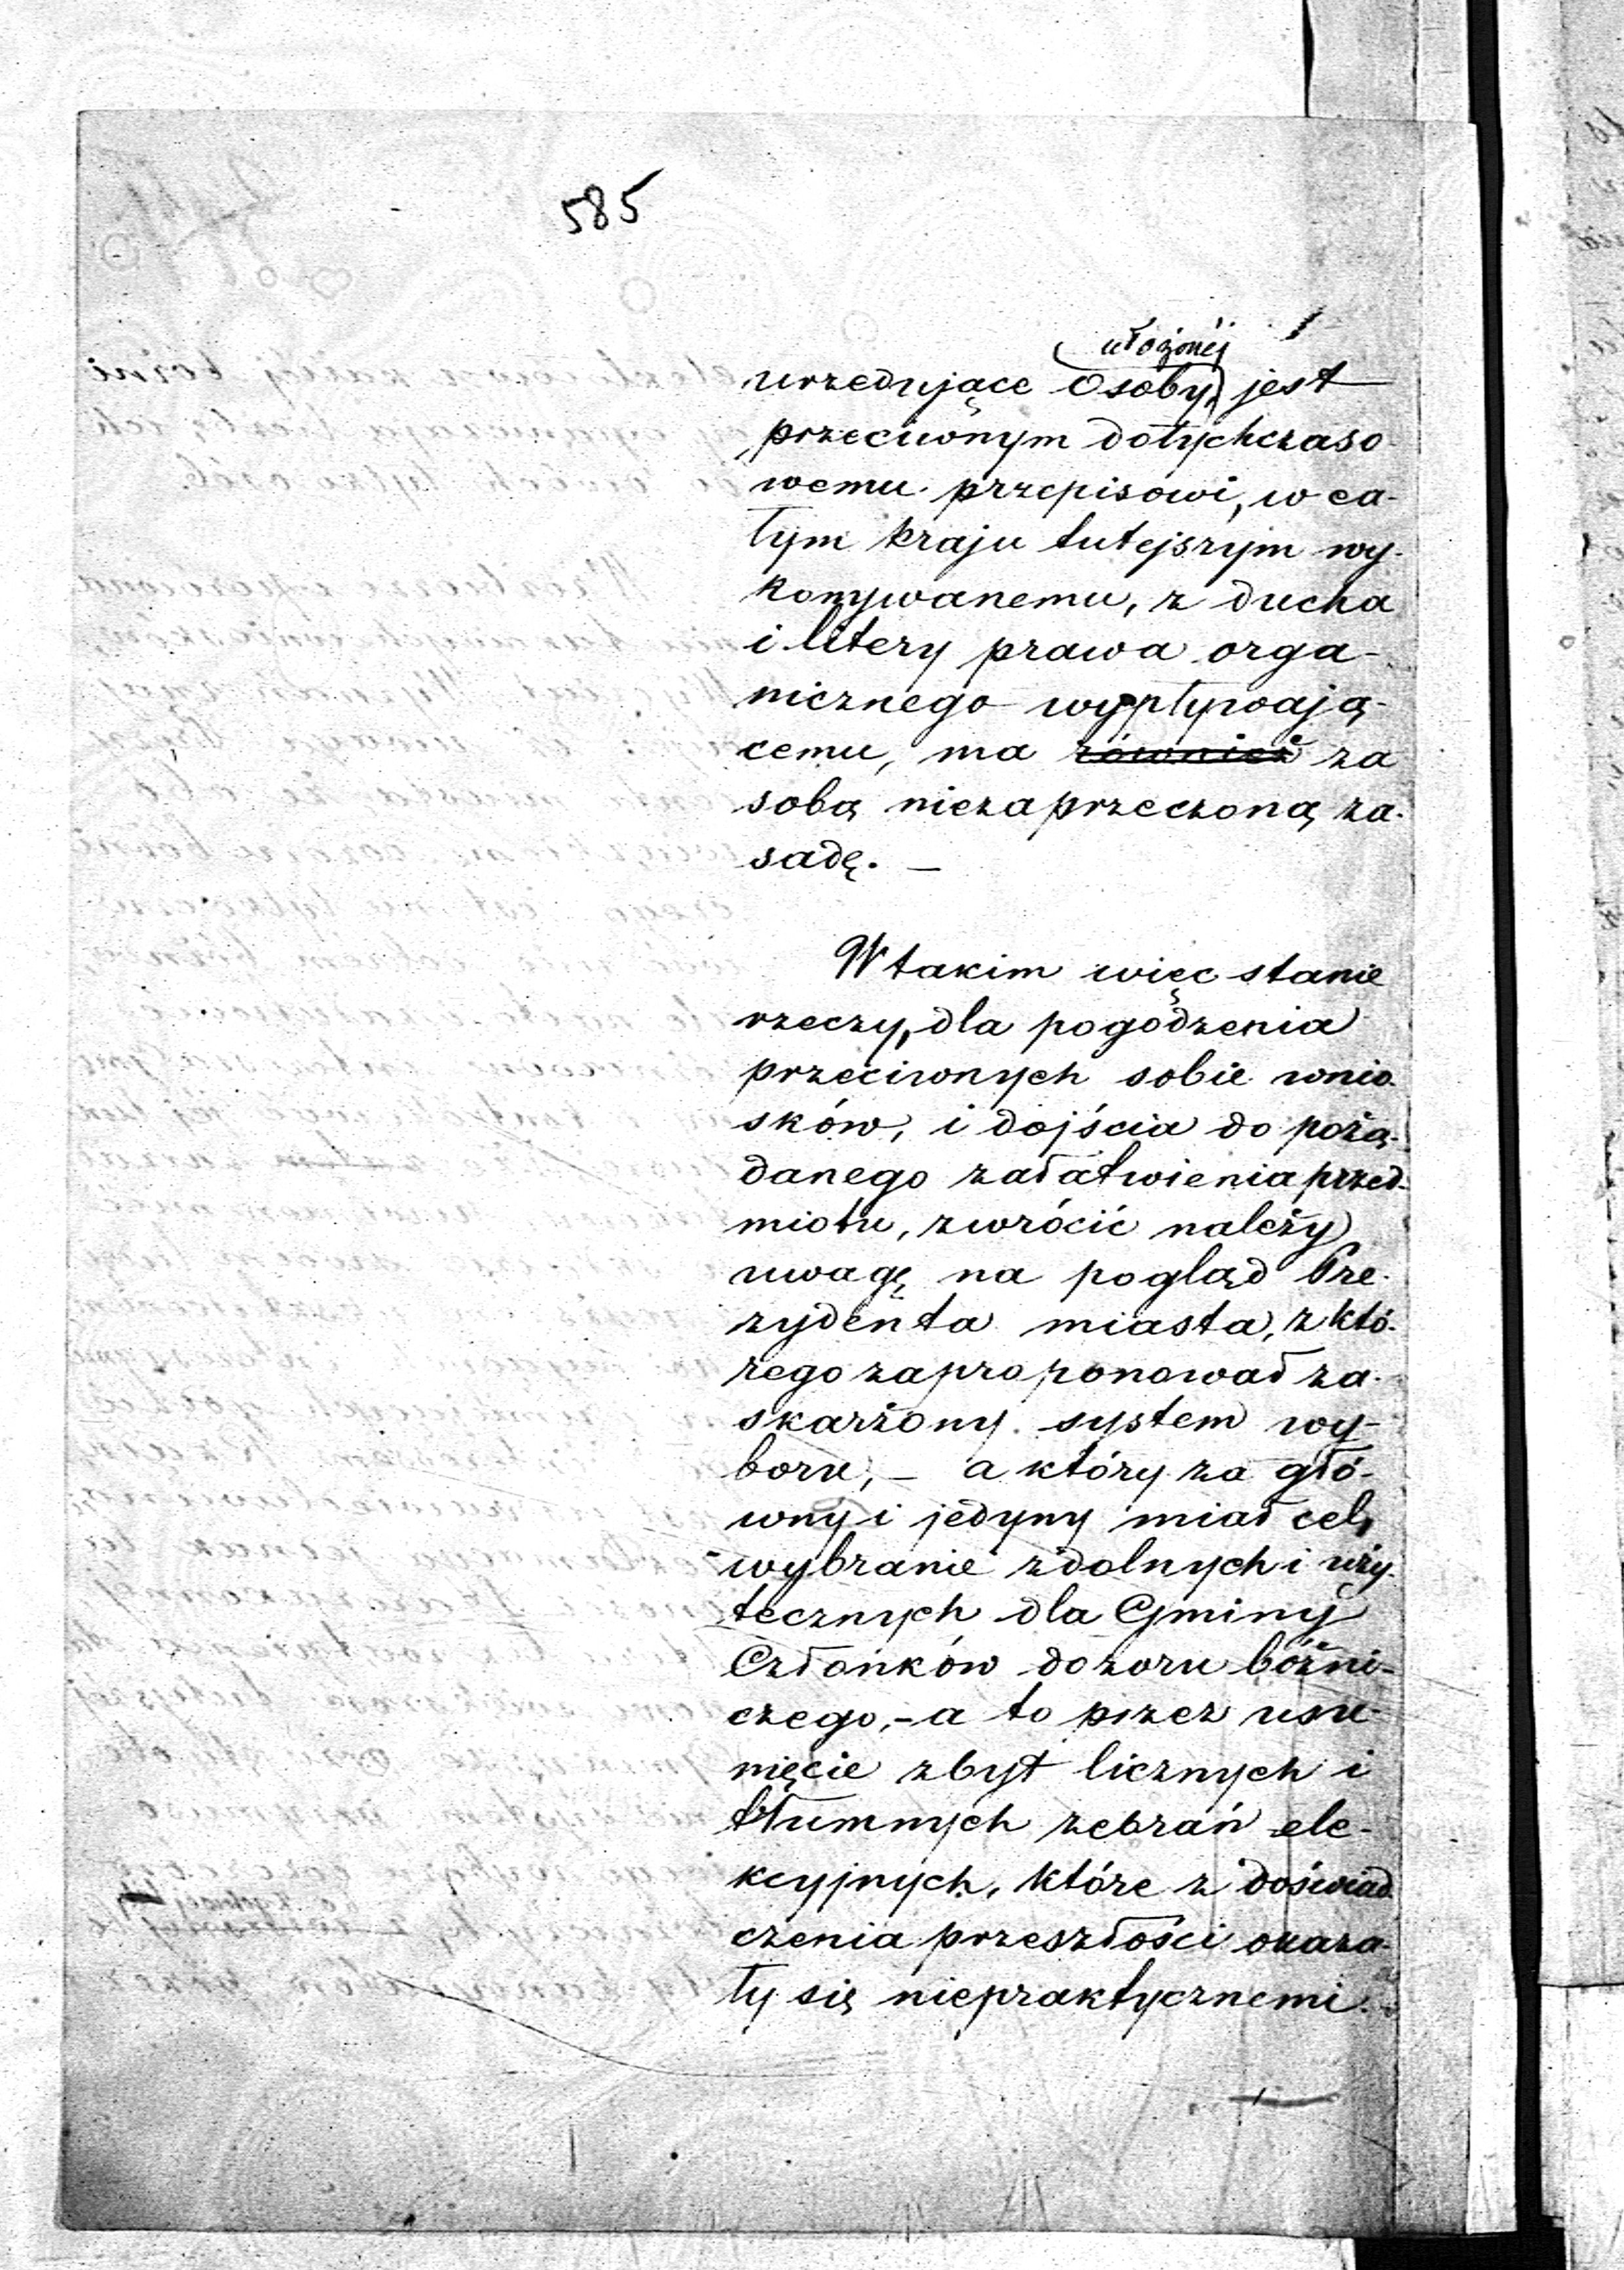 585
ułożonéj
urzędujące Osoby, jest
przeciwnym dotychczaso-
wemu przepisowi, w ca-
łym kraju tutejszym wy-
konywanemu, z ducha
i litery prawa orga-
nicznego wypływają-
cemu, ma również za
sobą niezaprzeczoną za-
sadę. —
W takim więc stanie
rzeczy, dla pogodzenia
przeciwnych sobie wnio-
sków, i dojścia do pożą-
danego załatwienia przed-
miotu, zwrócić należy
uwagę na pogląd Pre-
zydenta miasta, z któ-
rego zaproponował za-
skarżony system wy-
boru, — a który za głó-
wny i jedyny miał cel,
wybranie zdolnych i uży-
tecznych dla Gminy
Członków dozoru bóżni-
czego, - a to przez usu-
nięcie zbyt licznych i
tłumnych zebrań ele-
kcyjnych, które z doświad-
czenia przeszłości okaza-
ły się niepraktycznemi.